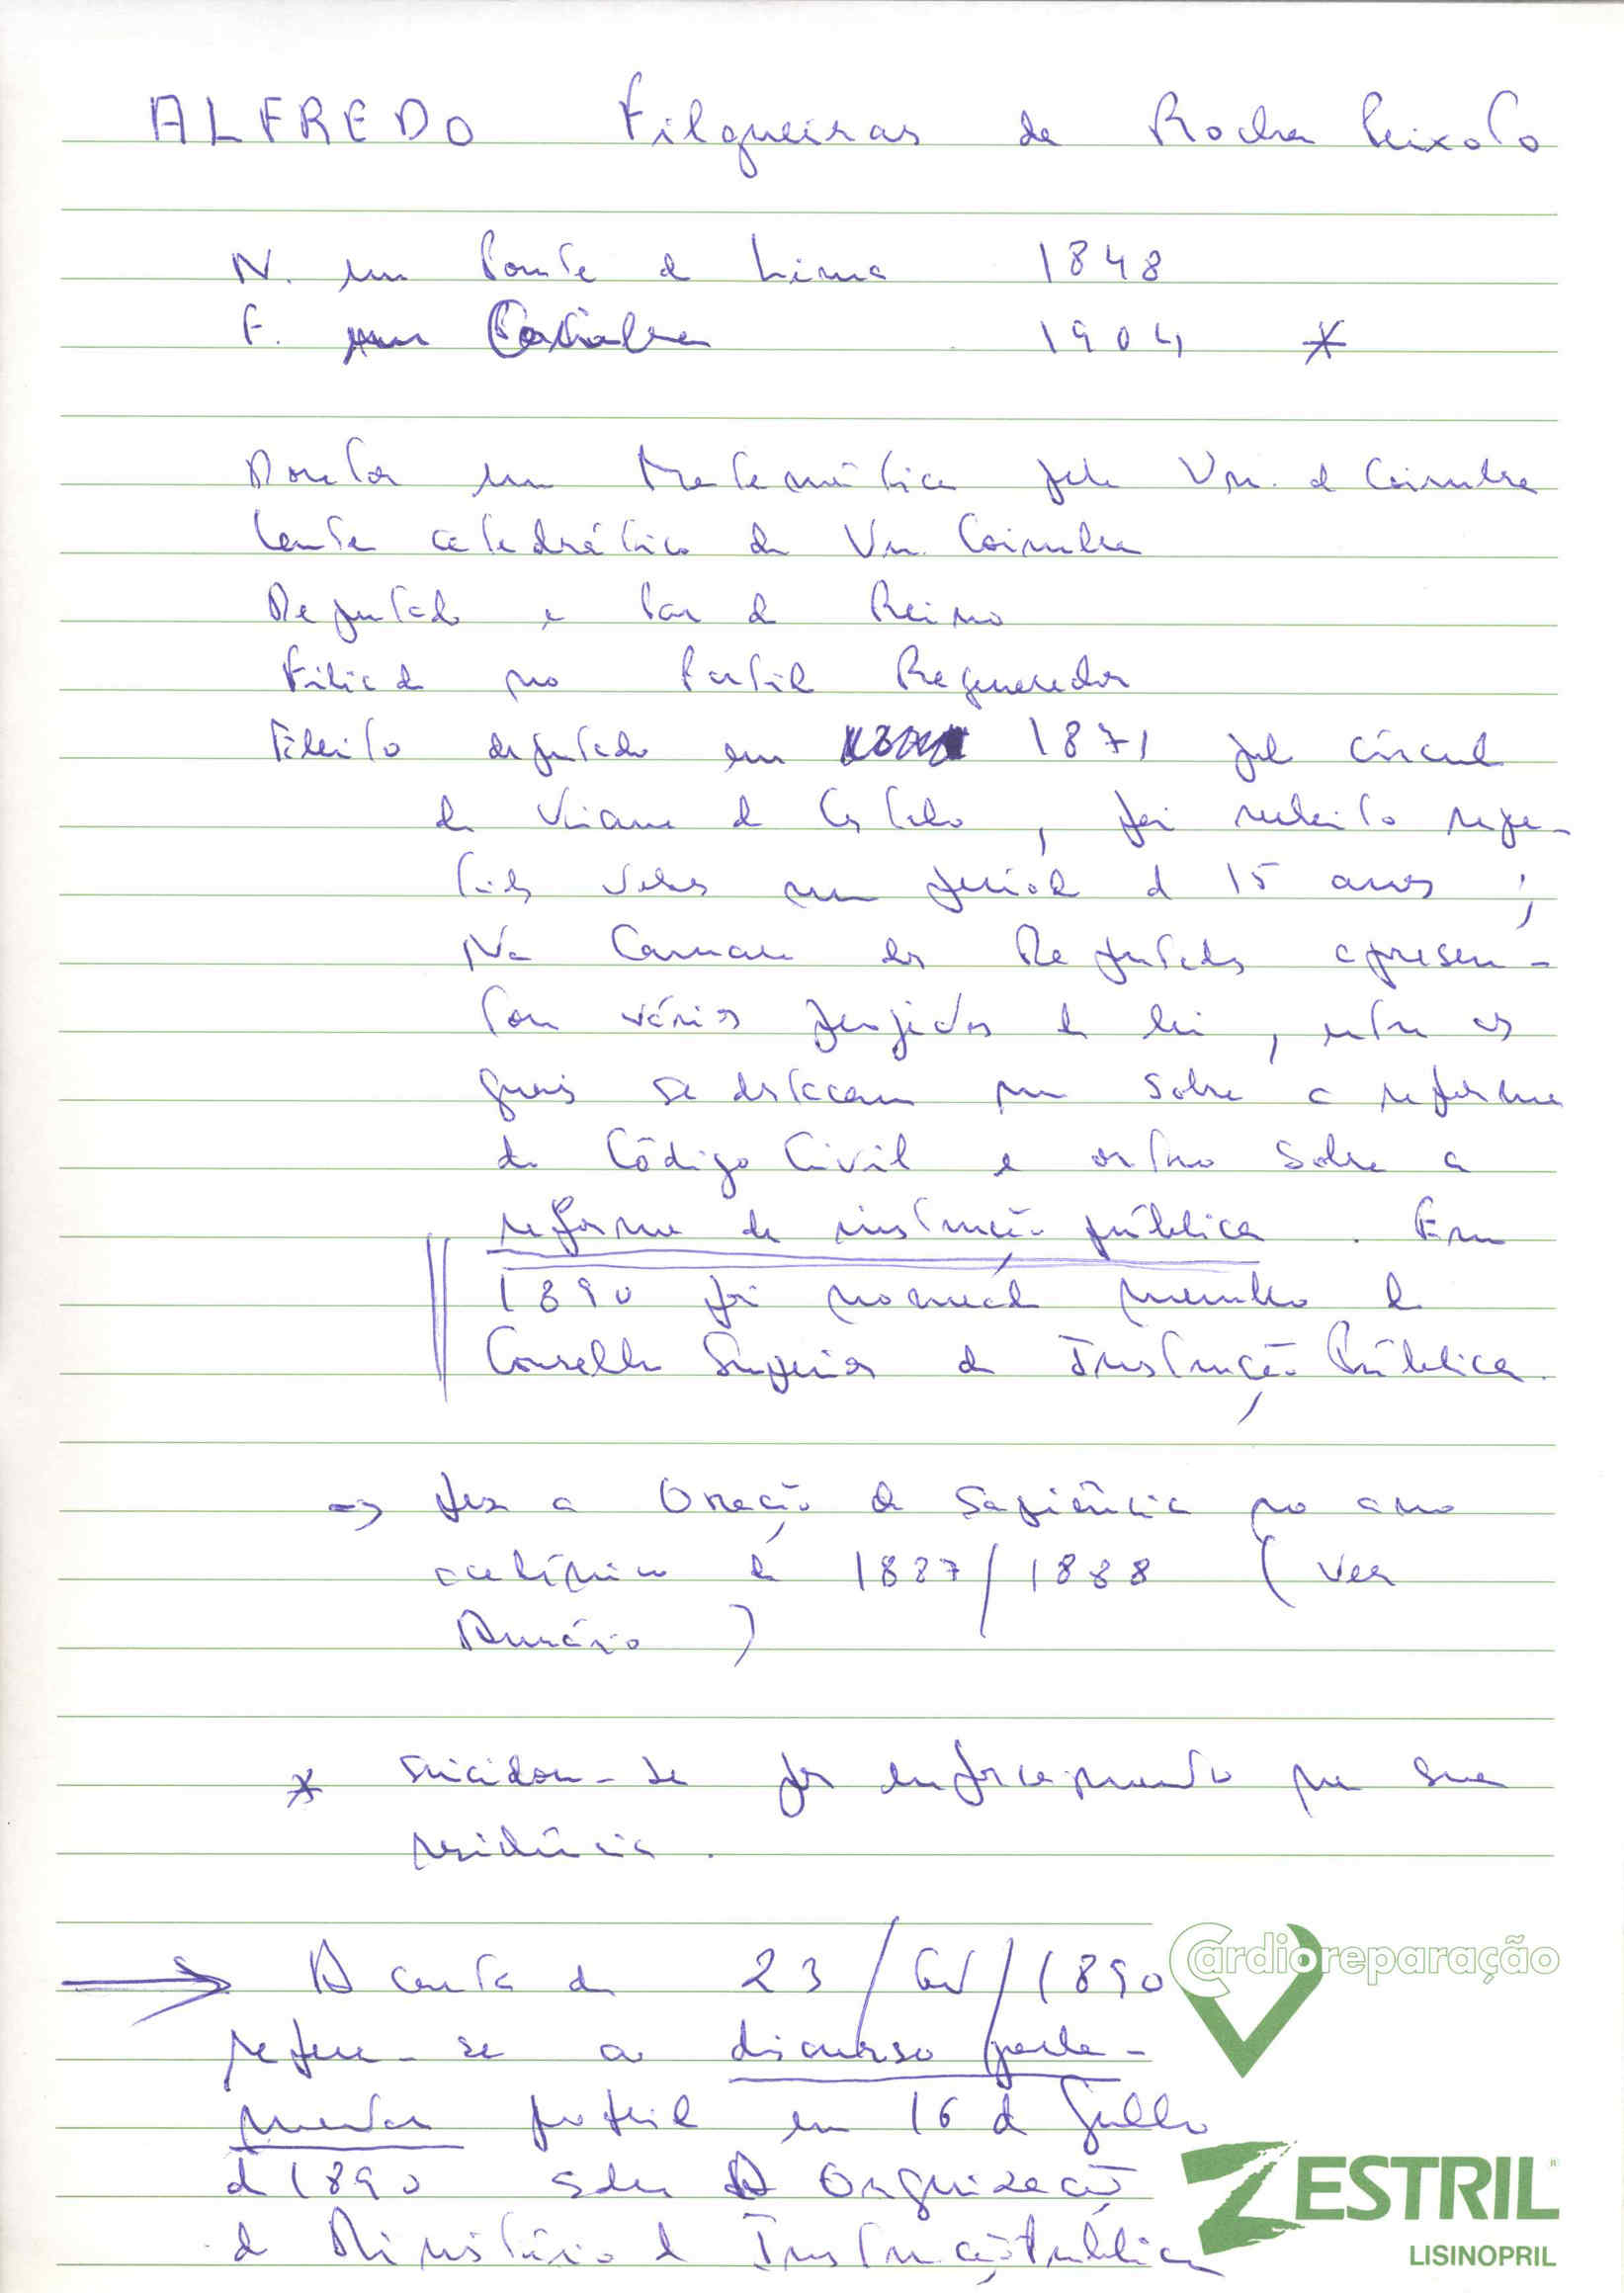 ALFREDO Filgueiras da Rocha Peixoto
N. em Ponte de Lima 1848
F. em Coimbra 1904 *
Doutor em Matemática pela Un. de Coimbra
Lente catedrático da Un. Coimbra
Deputado e Par do Reino
Filiado no Partido Regenerador
Eleito deputado em 1871 pelo círculo
de Viana do Castelo, foi reeleito repe-
tidas vezes num período de 15 anos;
Na Camara dos Deputados apresen-
tou vários projectos de lei, entre os
quais se destacam um sobre a reforma
do Código Civil e outro sobre a
reforma da instrução pública. Em
1890 foi nomeado membro do
Conselho Superior da Instrução Pública.
→ fez a Oração de Sapiência no ano
académico de 1887/1888 (ver
Anuário)
* suicidou-se por enforcamento na sua
residência.
→ A carta de 23/ /1890
refere-se ao discurso parla-
mentar proferido em 16 de Julho
de 1890 sobre A Organização
do Ministério de Instrução Publica
Cardioreparação
ZESTRIL
LISINOPRIL